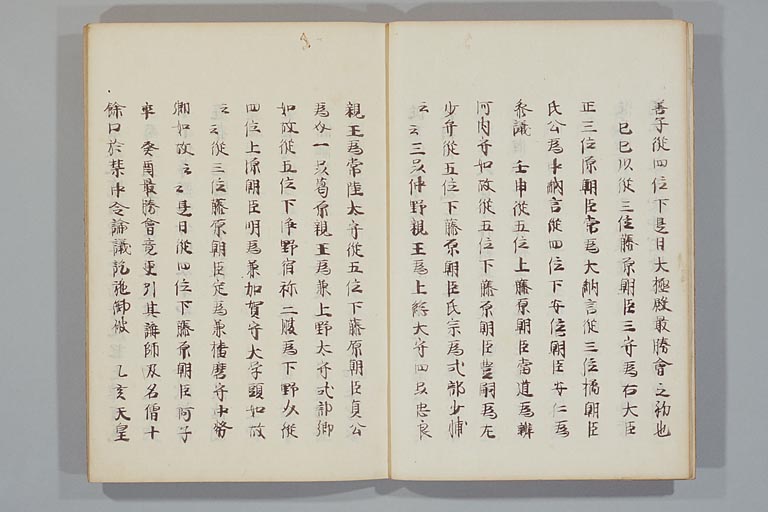 善子従四位下是日大極殿最勝會之初也
己巳以従三位藤原朝臣三守為右大臣
正三位源朝臣常為大納言従三位橘朝臣
氏公為中納言従四位下安倍朝臣安仁為
参議 壬申従五位上藤原朝臣当道為
河内守如故従五位下藤原朝臣豊嗣為左
少弁従五位下藤原朝臣氏宗為式部少輔
云云三品仲野親王為上総大守四品忠良
親王為常陸太守従五位下藤原朝臣貞公
為介一品葛原親王為兼上野太守式部卿
如故従五位下浄野宿祢二腹為下野少従
四位上源朝臣明為兼加賀守大学頭如故
云云従三位藤原朝臣定為兼播磨守中務
卿如故云云是日従四位下藤原朝臣阿子
卒 癸酉最勝會竟更引其講師及名僧十
餘口於禁中令論議訖施御被 乙亥天皇